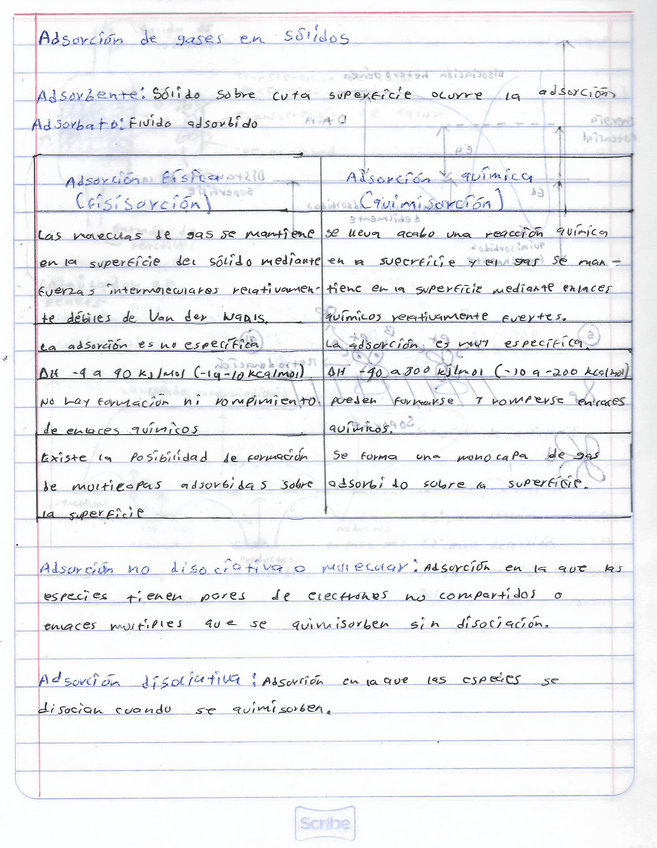 Adsorción de gases en sólidos
Adsorbente: Sólido sobre cuya superficie ocurre la adsorción
Adsorbato: Fluido adsorbido
Adsorción Física
(Fisisorción)
Adsorción química
(Quimisorción)
Las moleculas de gas se mantiene
en la superficie del sólido mediante
fuerzas intermoleculares relativamen-
te débiles de Van der Waals.
se lleva acabo una reacción química
en la superficie y el gas se man-
tiene en la superficie mediante enlaces
químicos relativamente fuertes.
La adsorción es no específica
La adsorción es muy específica.
ΔH -4 a 40 kJ/mol (-1a-10 kcal/mol)
ΔH -40 a 800 kJ/mol (-10 a -200 kcal/mol)
No hay formación ni rompimiento
de enlaces químicos
pueden formarse y romperse enlaces
químicos.
Existe la posibilidad de formación
de multicapas adsorbidas sobre
la superficie
Se forma una monocapa de gas
adsorbido sobre la superficie.
Adsorción no disociativa o molecular: Adsorción en la que las
especies tienen pares de electrones no compartidos o
enlaces multiples que se quimisorben sin disociación.
Adsorción disociativa: Adsorción en la que las especies se
disocian cuando se quimisorben.
Scribe